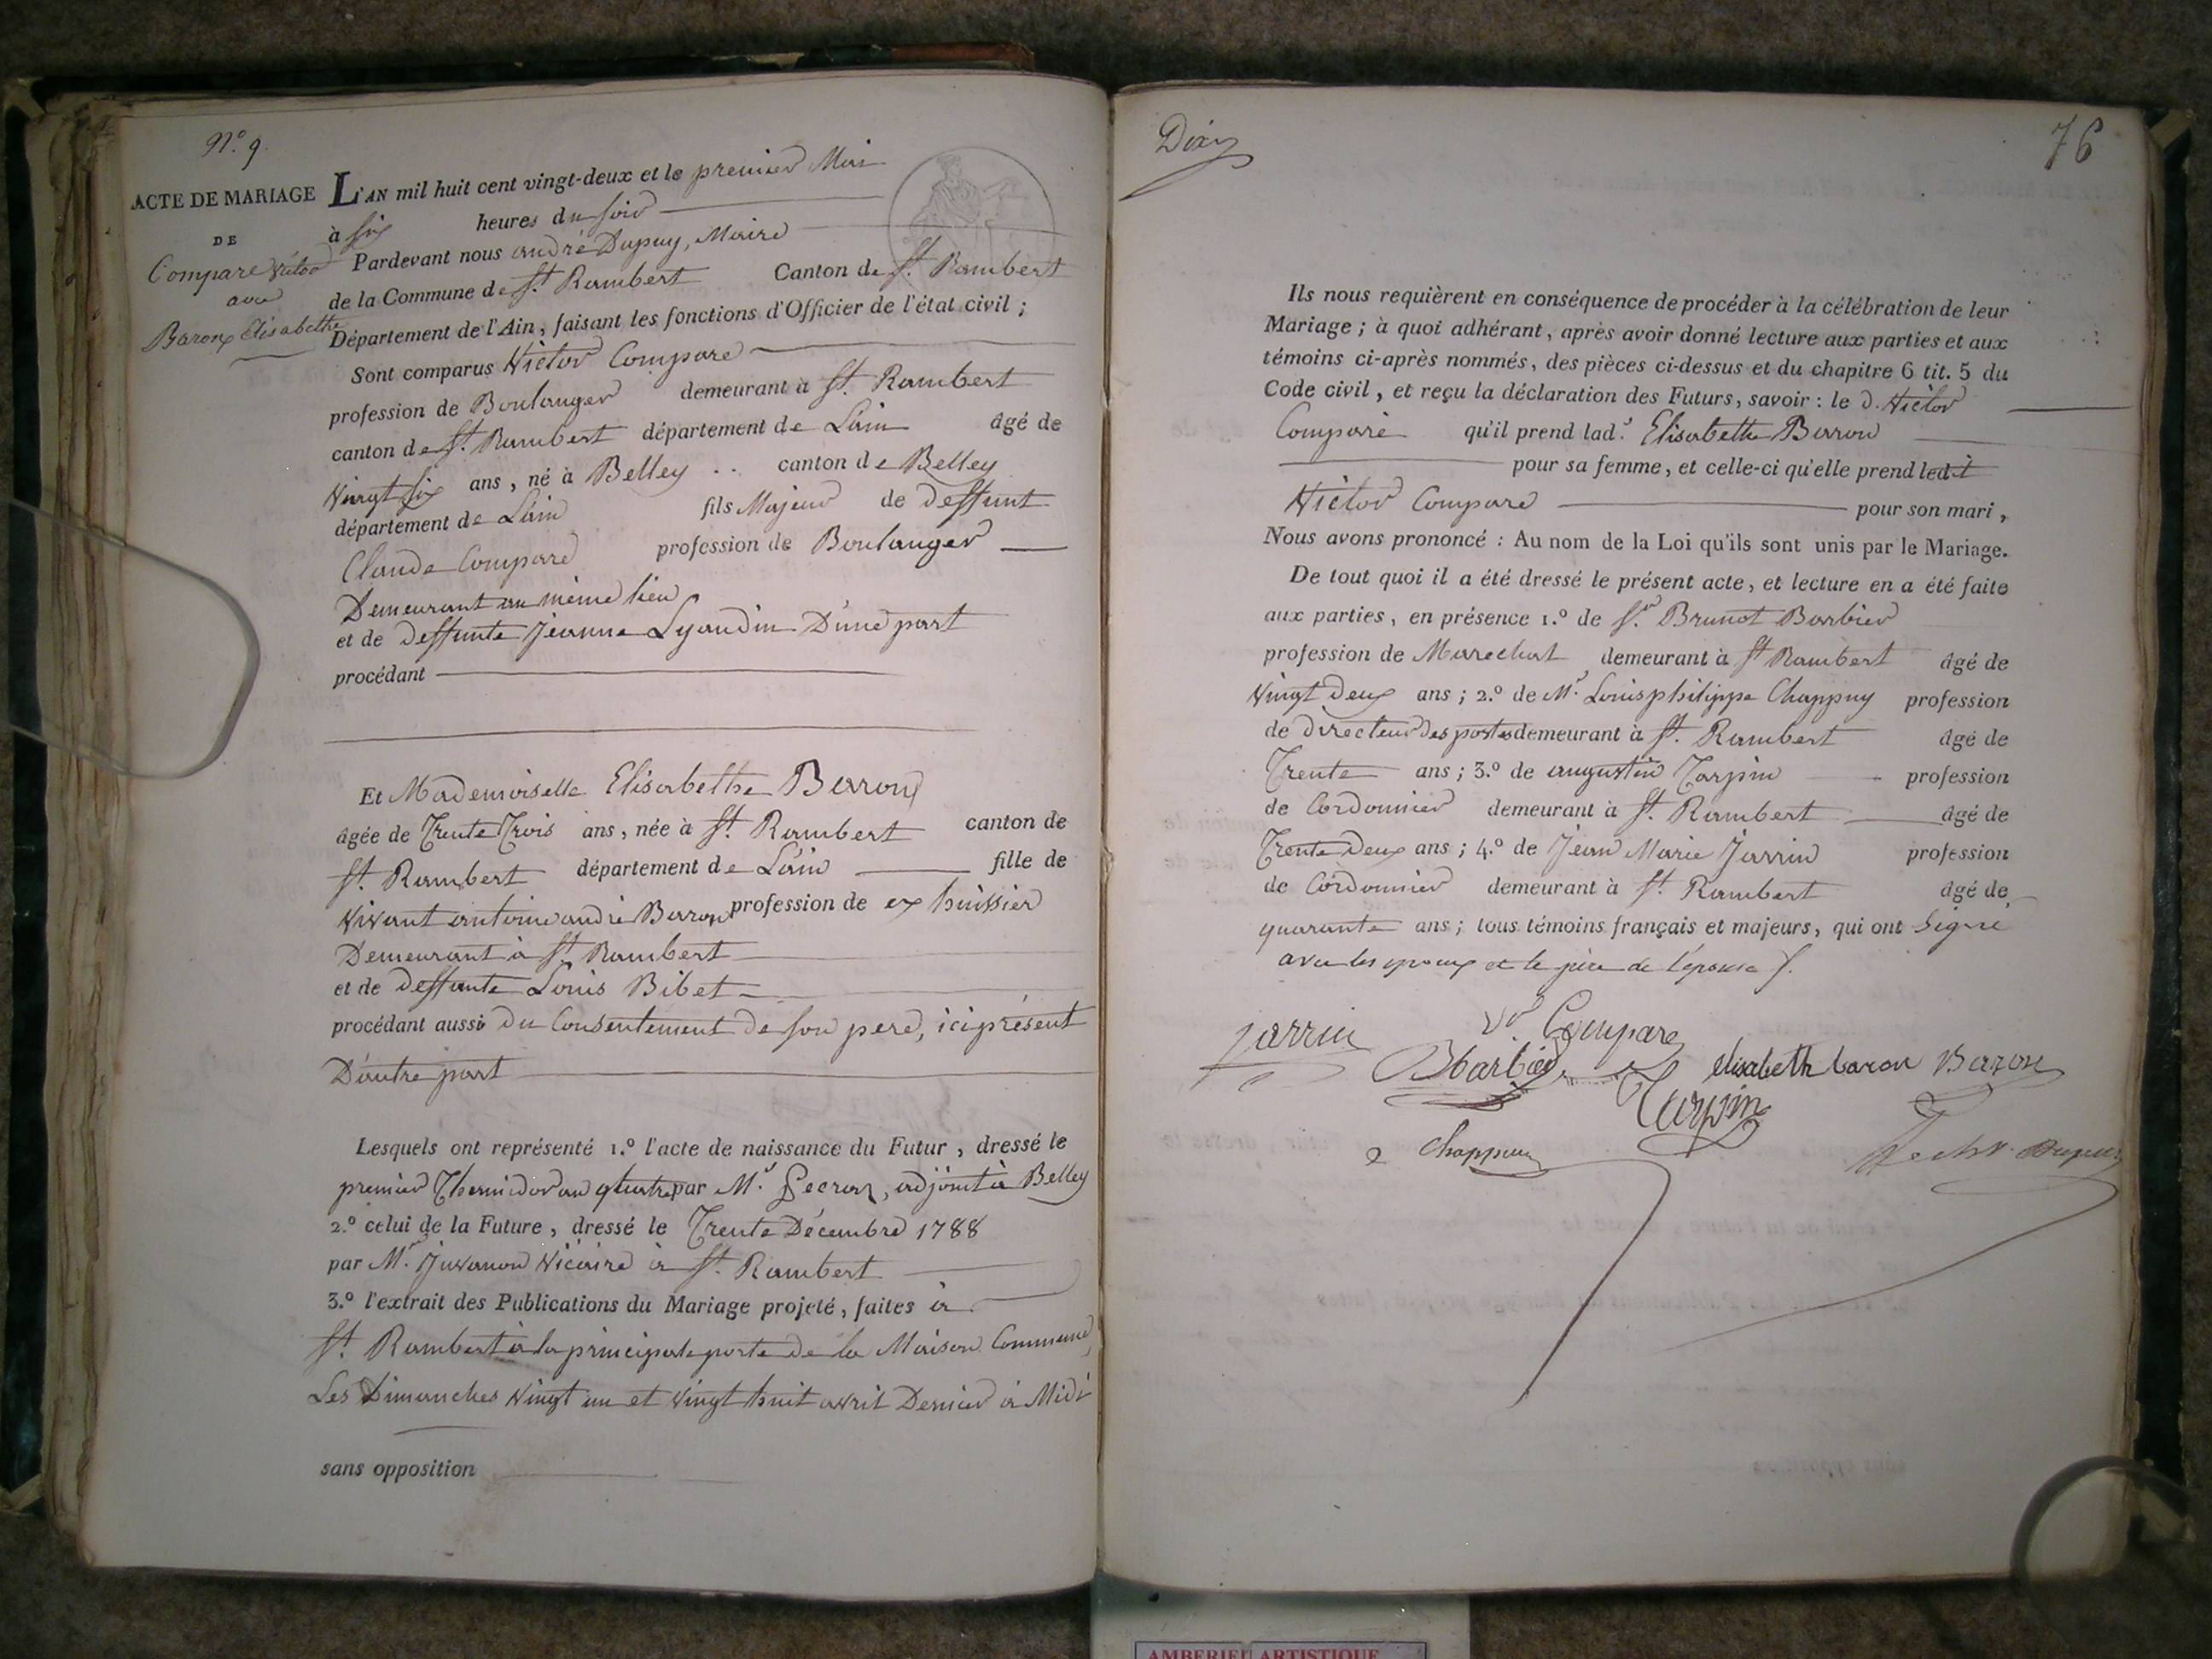 N.° 9.
ACTE DE MARIAGE
DE
Compare Victor
avec
Baron Elisabethe
L'AN mil huit cent vingt-deux et le premier Mai
à six heures du soir
Pardevant nous andré Dupuy, Maire
de la Commune de St. Rambert Canton de St. Rambert
Département de l'Ain, faisant les fonctions d'Officier de l'état civil ;
Sont comparus Victor Compare
profession de Boulanger demeurant à St. Rambert
canton de St. Rambert département de L'ain âgé de
Vingt six ans, né à Belley .. canton de Belley
département de L'ain fils Majeur de deffunt
Claude Compare profession de Boulanger
Demeurant au même lieu
et de deffunte Jeanne Lyaudin D'une part
procédant
Et Mademoiselle Elisabethe Baron
âgée de Trente Trois ans, née à St. Rambert canton de
St. Rambert département de L'ain fille de
Vivant antoine andré Baron profession de ex huissier
Demeurant à St. Rambert
et de deffunte Louis Bibet
procédant aussi du Consentement de son pere, ici présent
D'autre part
Lesquels ont représenté 1.° l'acte de naissance du Futur, dressé le
premier Thermidor an quatre par Mr. adjoint à Belley
2.° celui de la Future, dressé le Trente Décembre 1788
par Mr. Juvanon Vicaire à St. Rambert
3.° l'extrait des Publications du Mariage projeté, faites à
St. Rambert à la principale porte de la Maison Commune,
Les Dimanches Vingt un et Vingt huit avril Dernier à Midi
sans opposition
Dix
76
Ils nous requièrent en conséquence de procéder à la célébration de leur
Mariage ; à quoi adhérant, après avoir donné lecture aux parties et aux
témoins ci-après nommés, des pièces ci-dessus et du chapitre 6 tit. 5 du
Code civil, et reçu la déclaration des Futurs, savoir : le d. Victor
Compare qu'il prend lad.e Elisabethe Baron
pour sa femme, et celle-ci qu'elle prend ledit
Victor Compare pour son mari,
Nous avons prononcé : Au nom de la Loi qu'ils sont unis par le Mariage.
De tout quoi il a été dressé le présent acte, et lecture en a été faite
aux parties, en présence 1.° de Sr. Brunot Barbier
profession de Marechal demeurant à St Rambert âgé de
Vingt Deux ans ; 2.° de Mr. Louis philippe Chappuy profession
de directeur des postes demeurant à St. Rambert âgé de
Trente ans ; 3.° de augustin Tarpin profession
de Cordonnier demeurant à St. Rambert âgé de
Trente Deux ans ; 4.° de Jean Marie Jarrin profession
de Cordonnier demeurant à St. Rambert âgé de
quarante ans ; tous témoins français et majeurs, qui ont Signé
avec les epoux et le père de l'épouse
Jarrin Vr Compare
BBarbier elisabeth baron Baron
Tarpin
Chappuy Dupuy
AMBERIEU ARTISTIQUE